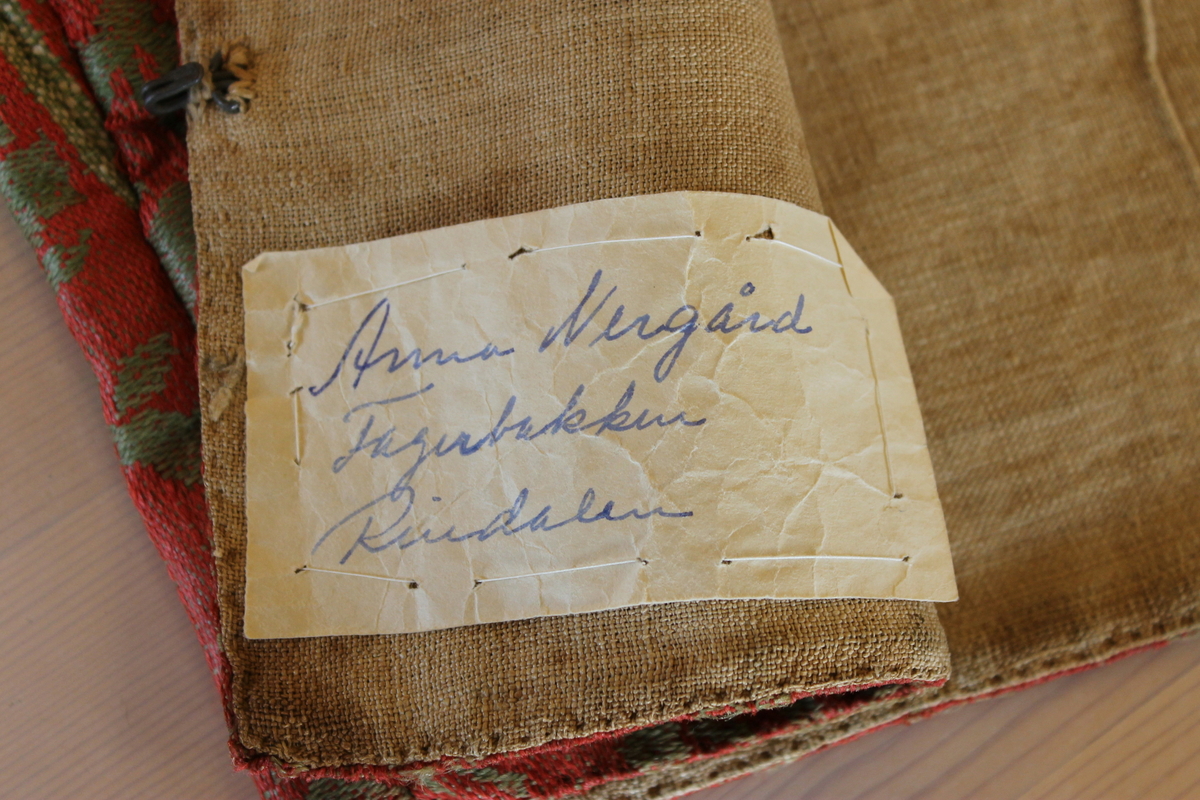 Anna Nergård
Fagerbakken
Rindalen